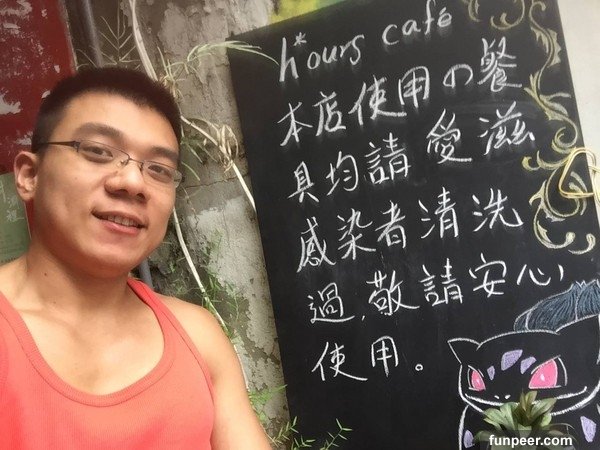 h*ours café
本店使用の餐
具均請 愛滋
感染者清洗
過,敬請安心
使用。
funpeer.com